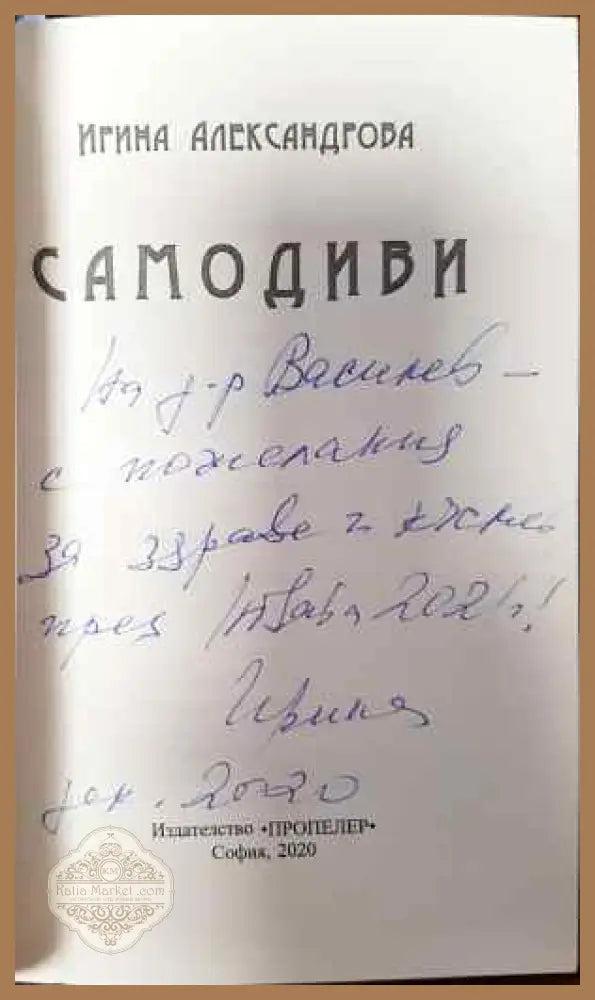 ИРИНА АЛЕКСАНДРОВА
САМОДИВИ
На д-р Василев –
с пожелания
за здраве и
през Новата 2021 г.!
Ирина
дек. 2020
Издателство •ПРОПЕЛЕР•
София, 2020
KM
Katia Market.com